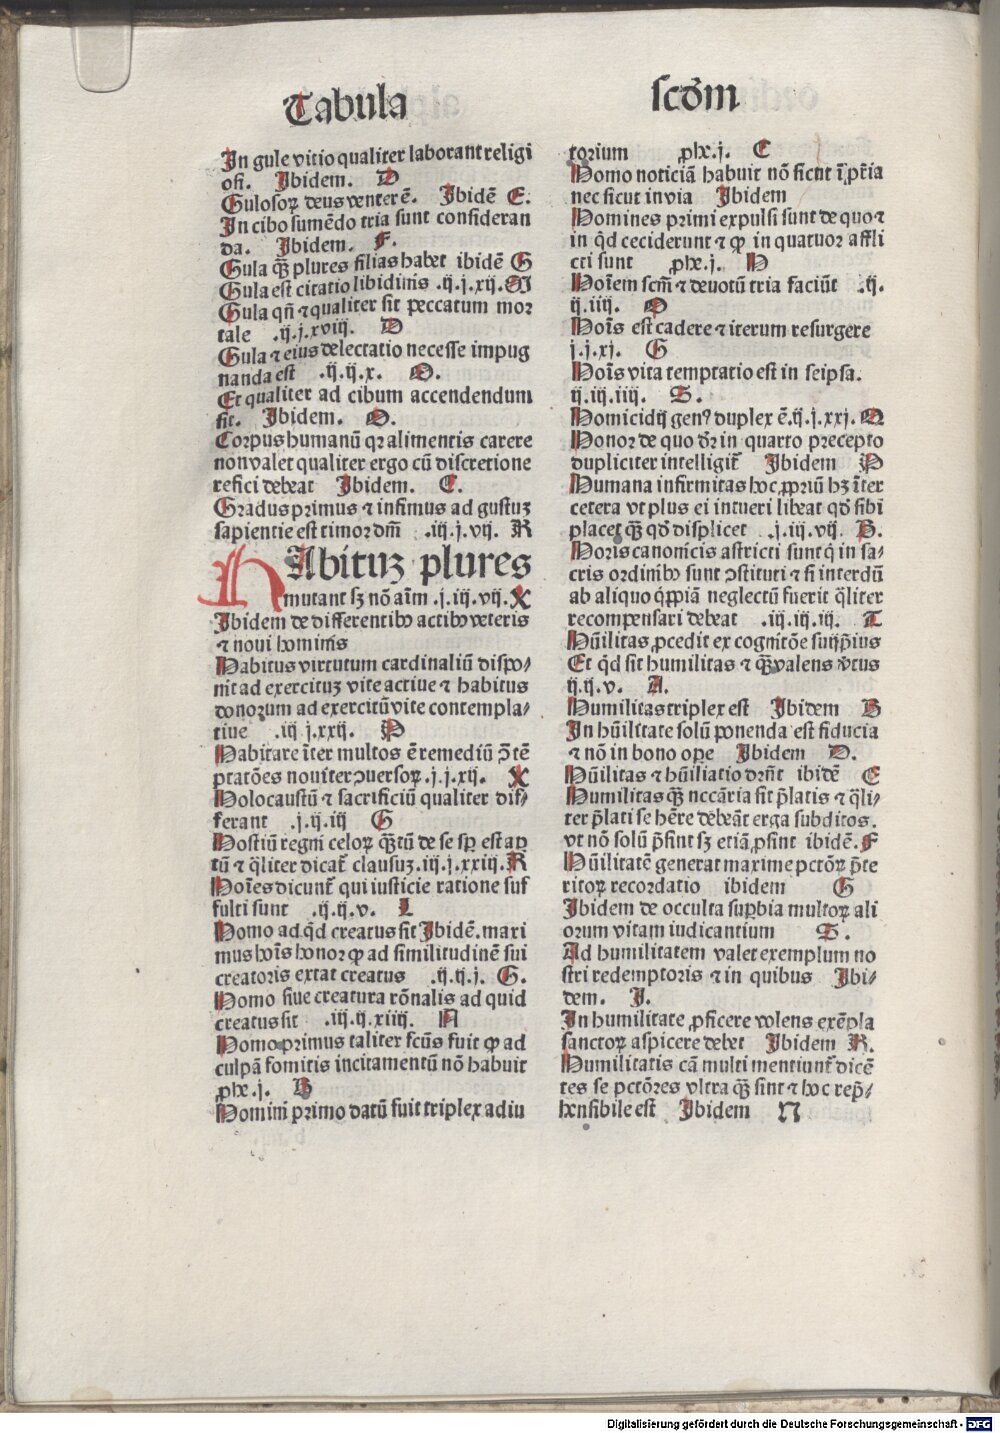 Tabula scđm
In gule vitio qualiter laborant religi
osi. Ibidem. D
Guloſoꝝ deus venter ē. Ibidē E.
In cibo sumēdo tria sunt consideran
da. Ibidem. F.
Gula qꝫ̄ plures filias habet ibidē G
Gula est citatio libidinis .ij.j.xij. M
Gula qn̄ ⁊ qualiter sit peccatum mor
tale .ij.j.xviij. D
Gula ⁊ eius delectatio necesse impug
nanda est .ij.ij.x. O.
Et qualiter ad cibum accendendum
sit. Ibidem. O.
Corpus humanū qꝛ alimentis carere
non valet qualiter ergo cū discretione
refici debeat Ibidem. C.
Gradus primus ⁊ infimus ad gustuꝫ
sapientie est timor dn̄i .iij.j.vij. R
HAbituꝫ plures
mutant sꝫ nō aīm .j.iij.vij. X
Ibidem de differentibꝰ actibꝰ veteris
⁊ noui hominis
Habitus virtutum cardinaliū dispo/
nit ad exercituꝫ vite actiue ⁊ habitus
donorum ad exercitū vite contempla/
tiue .iij j.xxij. P
Habitare īter multos ē remediū ↄ̄ tē
ptatōes nouiter ↄuersoꝝ .j.j.xij. X
Holocaustū ⁊ sacrificiū qualiter dif/
ferant .j.ij.iij G
Hostiū regni celoꝝ qꝫ̄tū de se sp̄ est ap
tū ⁊ q̄liter dicat̄ clausuꝫ .iij.j.xxiij. R
Hoīes dicunt̄ qui iusticie ratione suf
fulti sunt .ij.ij.v. L
Homo ad q̇d creatus sit Ibidē. maxi
mus hoīs honor ꝙ ad similitudinē sui
creatoris extat creatus .ij.ij.j. G.
Homo siue creatura rōnalis ad quid
creatus sit .iij.ij.xiiij. A
Homo primus taliter fcūs fuit ꝙ ad
culpā fomitis incitamentū nō habuit
ꝓhe.j. B
Homini primo datū fuit triplex adiu
torium ꝓhe.j. C
Homo noticiā habuit nō sicut ī pr̄ia
nec sicut in via Ibidem
Homines primi expulsi sunt de quo ⁊
in q̇d ceciderunt ⁊ ꝙ in quatuor affli
cti sunt ꝓhe.j. D
Hoīem scm̄ ⁊ deuotū tria faciūt .ij.
ij.iiij. O
Hoīs est cadere ⁊ iterum resurgere
j.j.xj. G
Hoīs vita temptatio est in seipsa.
ij.iij.iiij. S.
Homicidij genꝰ duplex ē.ij.j.xxj. O
Honor de quo dr̄ in quarto precepto
dupliciter intelligit̄ Ibidem P
Humana infirmitas hoc ꝓpriū hꝫ īter
cetera vt plus ei intueri libeat qd̄ sibi
placet qꝫ̄ qd̄ displicet .j.iij.vij. B.
Horis canonicis astricti sunt q̇ in sa/
cris ordinibꝰ sunt ↄstituti ⁊ si interdū
ab aliquo q̇ppiā neglectū fuerit q̄liter
recompensari debeat .iij.iij.iij. T
Hūilitas ꝓcedit ex cognitōe suijp̄ius
Et q̇d sit humilitas ⁊ qꝫ̄ valens v̄tus
ij.ij.v. A.
Humilitas triplex est Ibidem B
In hūilitate solū ponenda est fiducia
⁊ nō in bono oꝑe Ibidem D.
Hūilitas ⁊ hūiliatio drn̄t ibidē E
Humilitas qꝫ̄ nccāria sit p̄latis ⁊ q̄li/
ter p̄lati se hēre debeāt erga subditos.
vt nō solū p̄sint sꝫ etiā ꝓsint ibidē. F
Hūilitatē generat maxime pctōꝝ p̄te
ritoꝝ recordatio ibidem G
Ibidem de occulta suꝑbia multoꝝ ali
orum vitam iudicantium S.
Ad humilitatem valet exemplum no
stri redemptoris ⁊ in quibus Ibi/
dem. I.
In humilitate ꝓficere volens exēpla
sanctoꝝ aspicere debet Ibidem R.
Humilitatis cā multi mentiunt̄ dicē
tes se pctōres vltra qꝫ̄ sint ⁊ hoc rep̄/
hensibile est Ibidem N
Digitalisierung gefördert durch die Deutsche Forschungsgemeinschaft - DFG